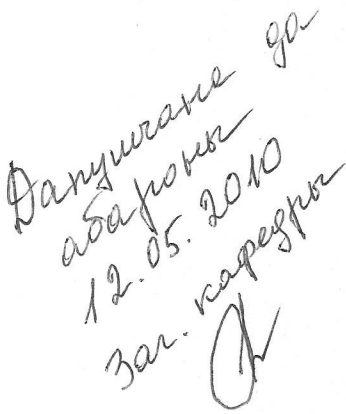 Дапушчана да
абароны
12.05.2010
Заг. кафедры